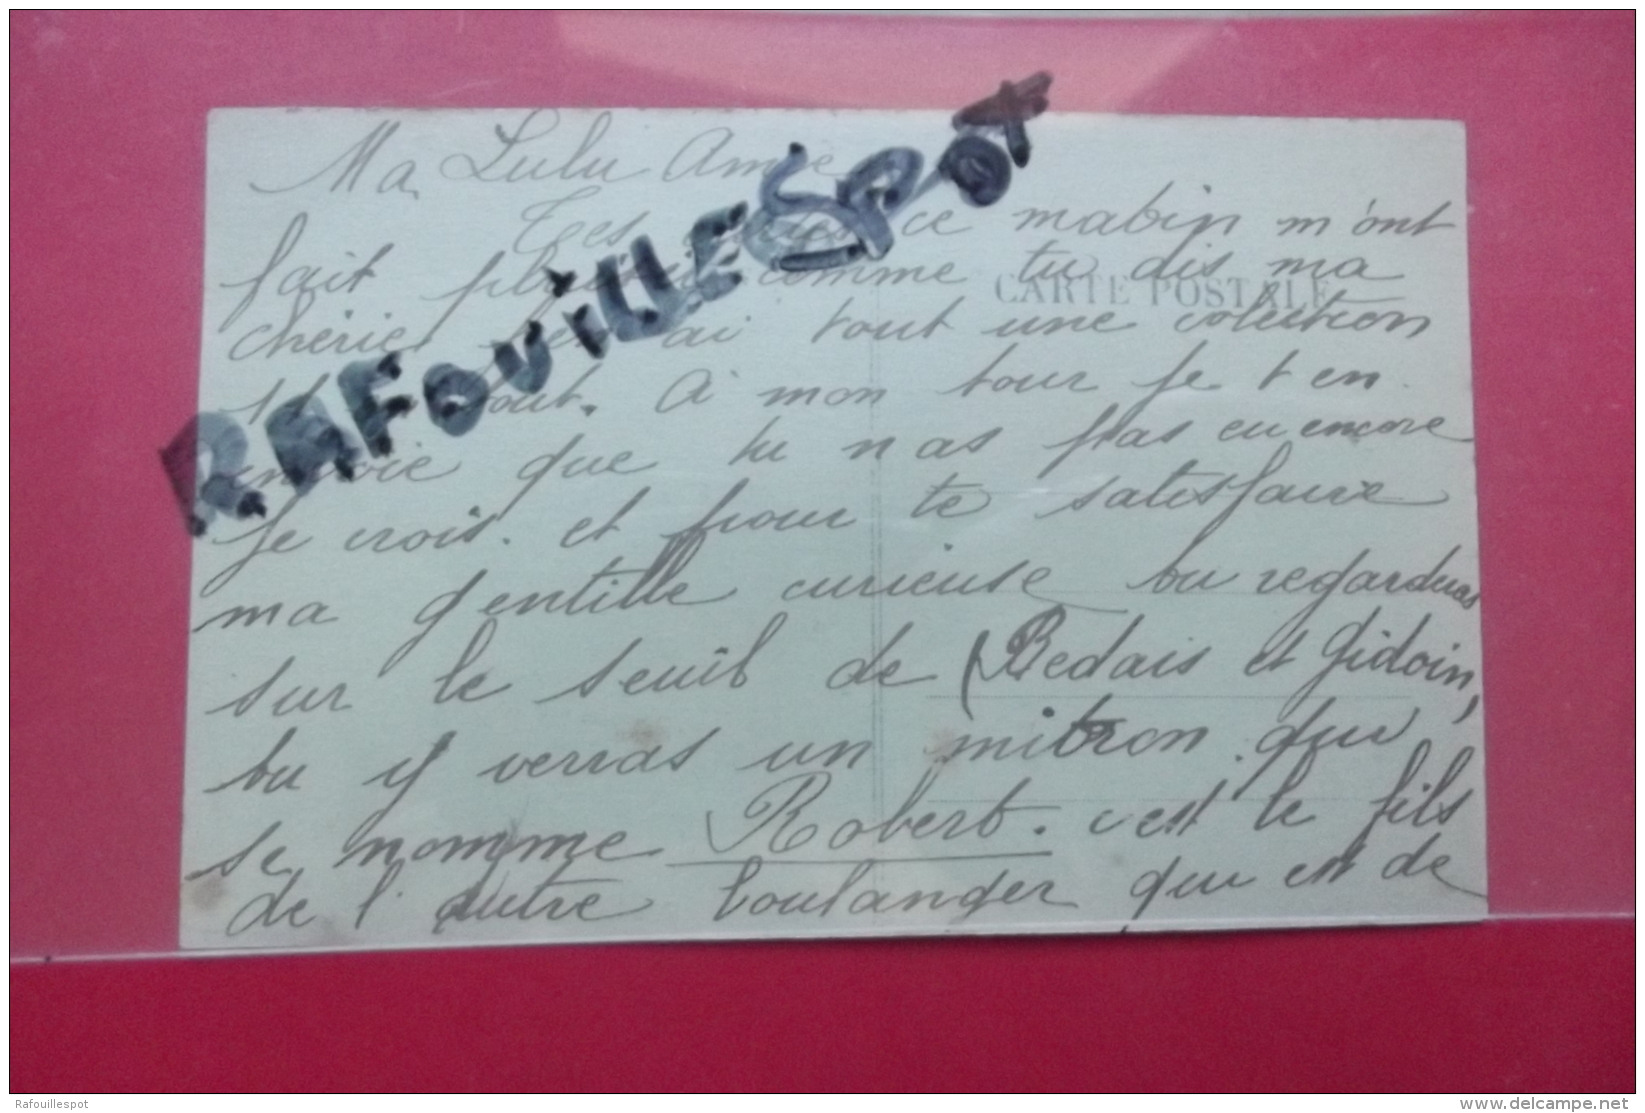 Ma Lulu Amie
Tes ce mabin m'ont
fait comme tu dis ma
CARTE POSTALE
cherie ai tout une colection
11 tout. A mon tour je t en
envoie que tu n as pas eu encore
je crois. et pour te satisfaire
ma gentille curieuse tu regarderas
sur le seuil de (Bedais et Gidoin,
tu y verras un mitron qui
se nomme Robert. c'est le fils
de l'autre boulanger qui est de
RAFOUILLESPOT
Rafouillespot
www.delcampe.net